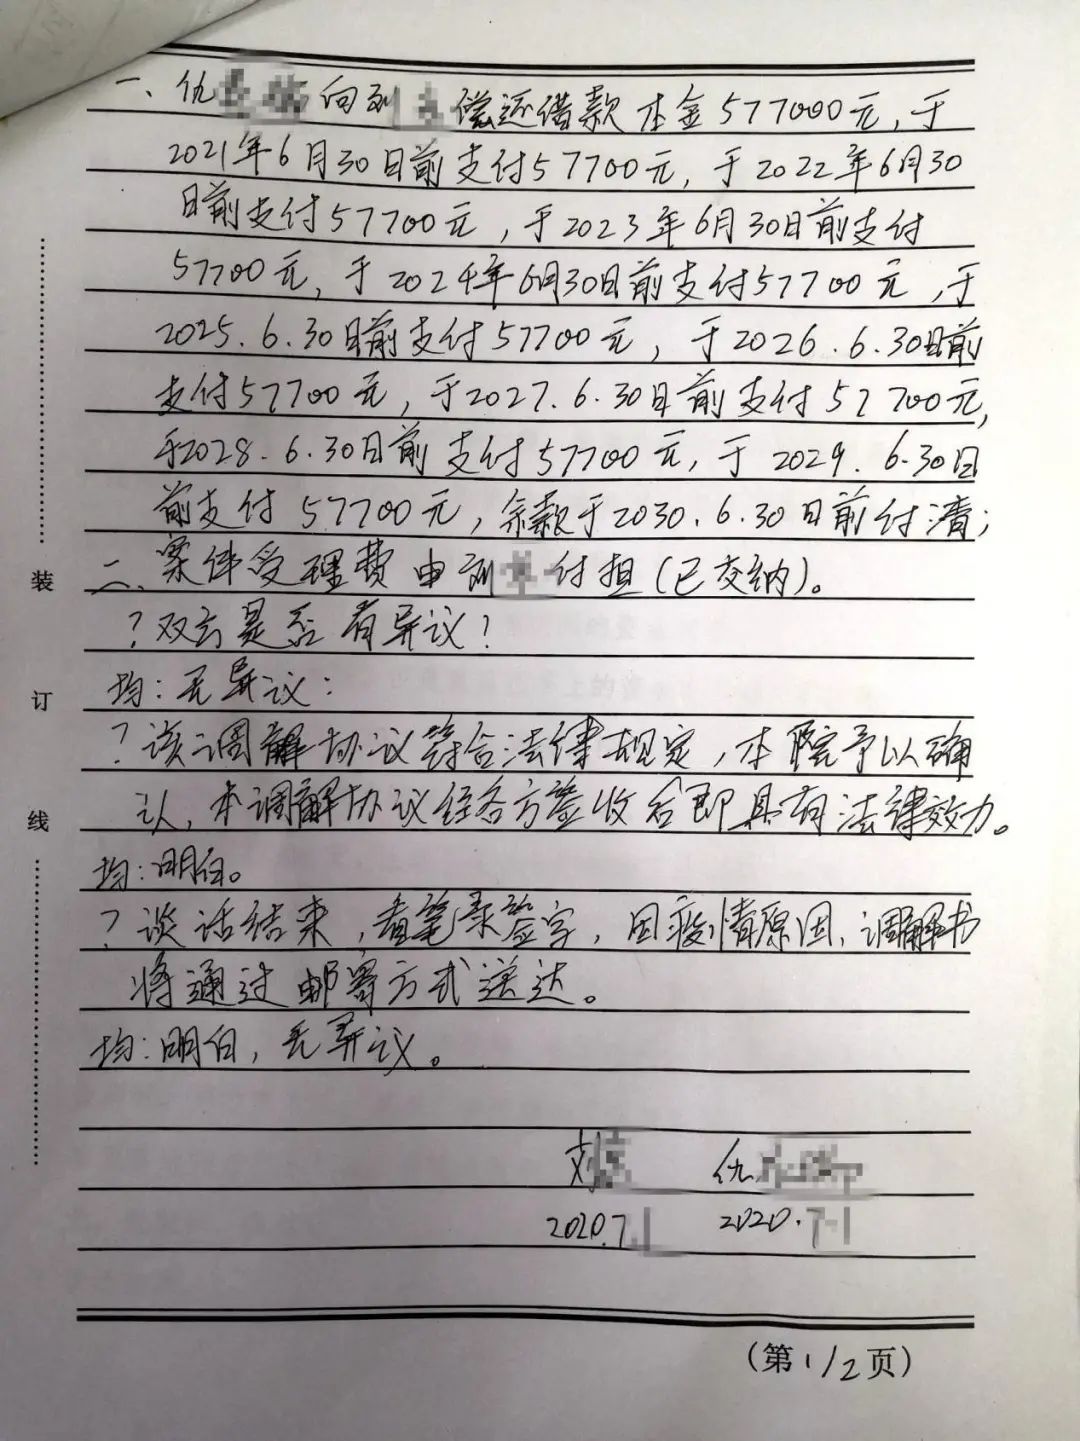 一、仇 向刘 偿还借款本金577000元,于
2021年6月30日前支付57700元,于2022年6月30
日前支付57700元,于2023年6月30日前支付
57700元,于2024年6月30日前支付57700元,于
2025.6.30日前支付57700元,于2026.6.30日前
支付57700元,于2027.6.30日前支付57700元,
于2028.6.30日前支付57700元,于2029.6.30日
前支付57700元,余款于2030.6.30日前付清;
二、案件受理费由刘 付担(已交纳)。
?双方是否有异议?
均:无异议:
?该调解协议符合法律规定,本院予以确
认,本调解协议经各方签收后即具有法律效力。
均:明白。
?谈话结束,看笔录签字,因疫情原因,调解书
将通过邮寄方式送达。
均:明白,无异议。
刘 仇
2020.7. 1 2020.7-1
(第1/2页)
装
订
线